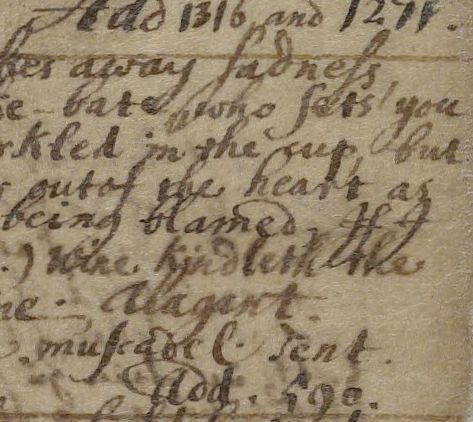 Add 1316 and 1271.
hes away sadness,
e-bate who sets you
rkled in the cup, but
s out of the heart as
being blamed. If I
.) Wine kindleth the
ne. Alagant.
muscadel. Tent.
Add. 590.